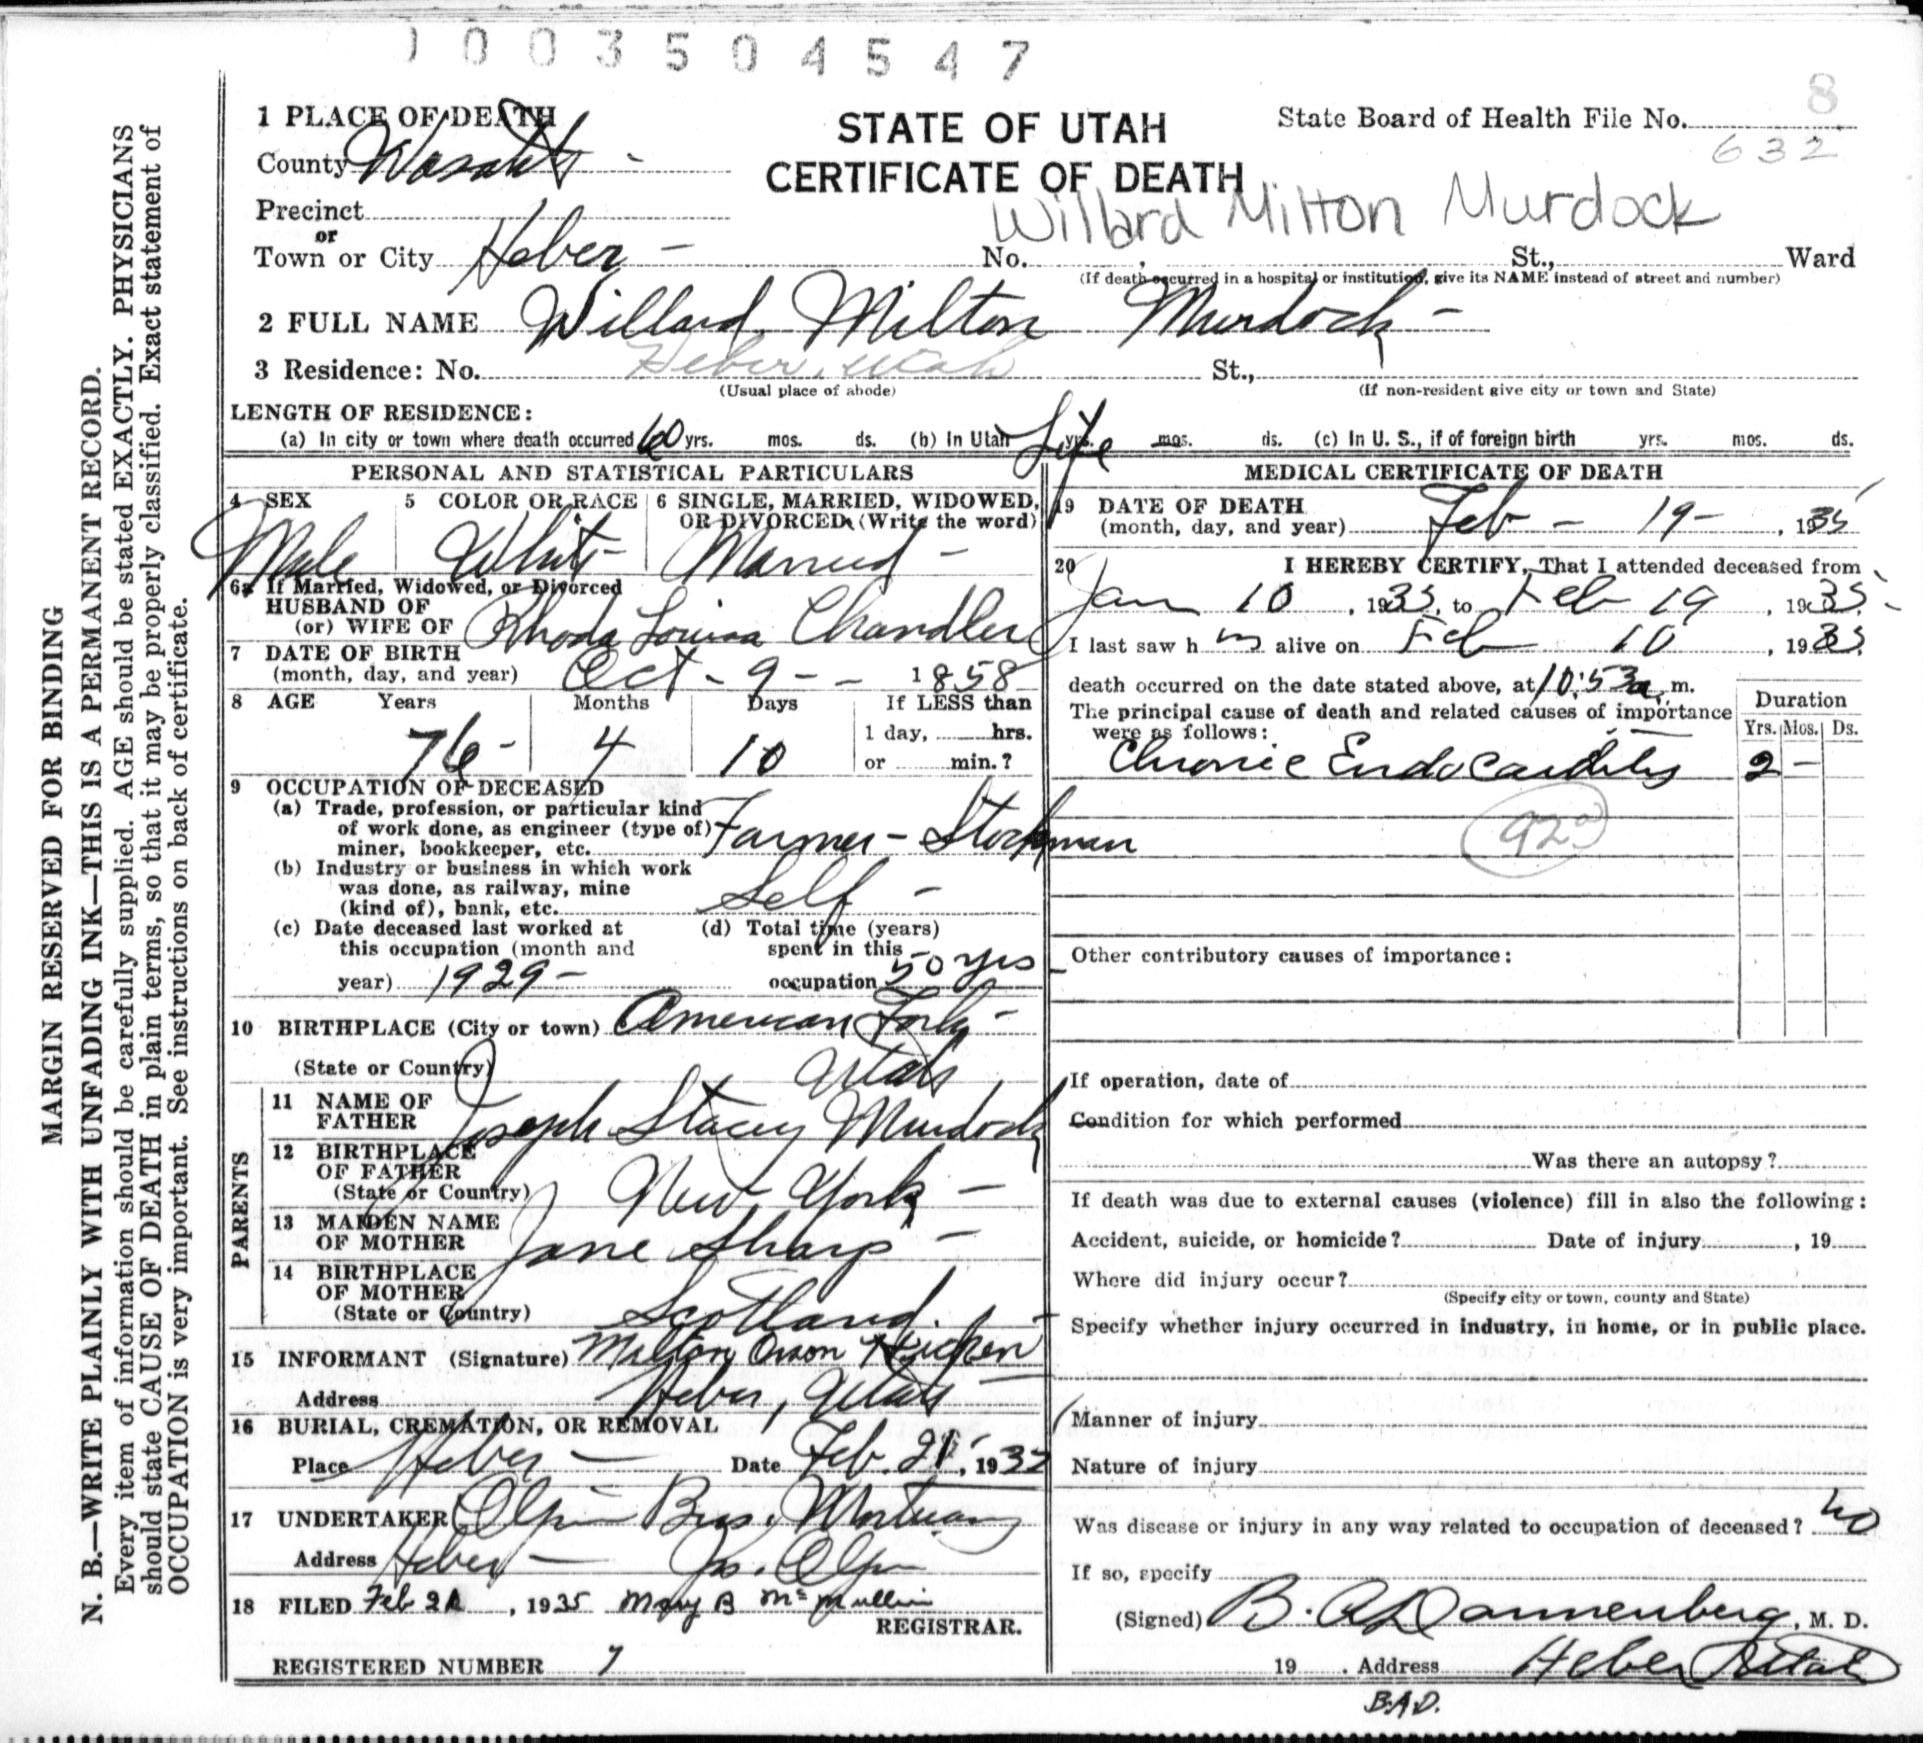 1003504547
8
1 PLACE OF DEATH
STATE OF UTAH
State Board of Health File No.
632
County Wasatch -
CERTIFICATE OF DEATH
Willard Milton Murdock
Precinct
or
Town or City Heber - No. , St., Ward
(If death occurred in a hospital or institution, give its NAME instead of street and number)
2 FULL NAME Willard Milton Murdock -
3 Residence: No. Heber, Utah St.,
(Usual place of abode) (If non-resident give city or town and State)
LENGTH OF RESIDENCE:
(a) In city or town where death occurred 60 yrs. mos. ds. (b) In Utah Life yrs. mos. ds. (c) In U. S., if of foreign birth yrs. mos. ds.
PERSONAL AND STATISTICAL PARTICULARS
4 SEX 5 COLOR OR RACE 6 SINGLE, MARRIED, WIDOWED, OR DIVORCED (Write the word)
Male White Married -
6a If Married, Widowed, or Divorced
HUSBAND OF
(or) WIFE OF Rhoda Louisa Chandler
7 DATE OF BIRTH
(month, day, and year) Oct - 9 - - 1858
8 AGE Years Months Days If LESS than
1 day, hrs.
76 - 4 10 or min.?
9 OCCUPATION OF DECEASED
(a) Trade, profession, or particular kind
of work done, as engineer (type of) Farmer - Stockman
miner, bookkeeper, etc.
(b) Industry or business in which work
was done, as railway, mine Self -
(kind of), bank, etc.
(c) Date deceased last worked at (d) Total time (years)
this occupation (month and spent in this
year) 1929 - occupation 50 yrs
10 BIRTHPLACE (City or town) American Fork -
(State or Country) Utah
PARENTS
11 NAME OF
FATHER Joseph Stacey Murdock
12 BIRTHPLACE
OF FATHER New York -
(State or Country)
13 MAIDEN NAME
OF MOTHER Jane Sharp -
14 BIRTHPLACE
OF MOTHER
(State or Country) Scotland. -
15 INFORMANT (Signature) Milton Orson Hicken
Address Heber, Utah -
16 BURIAL, CREMATION, OR REMOVAL
Place Heber - Date Feb. 21, 1935
17 UNDERTAKER Olpin Bros. Mortuary
Address Heber - Jos. Olpin
18 FILED Feb 21, 1935 Mary B McMullin
REGISTRAR.
REGISTERED NUMBER 7
MEDICAL CERTIFICATE OF DEATH
19 DATE OF DEATH
(month, day, and year) Feb - 19 - , 1935
20 I HEREBY CERTIFY, That I attended deceased from
Jan 10, 1935, to Feb 19, 1935.
I last saw h m alive on Feb 10, 1935.
death occurred on the date stated above, at 10:53 a. m.
The principal cause of death and related causes of importance
were as follows:
Duration
Yrs. Mos. Ds.
Chronic Endocarditis 2 -
Other contributory causes of importance:
If operation, date of
Condition for which performed
Was there an autopsy?
If death was due to external causes (violence) fill in also the following:
Accident, suicide, or homicide? Date of injury , 19
Where did injury occur?
(Specify city or town, county and State)
Specify whether injury occurred in industry, in home, or in public place.
Manner of injury
Nature of injury
Was disease or injury in any way related to occupation of deceased? no
If so, specify
(Signed) B. A. Dannenberg, M. D.
19 . Address Heber Utah
B.A.D.
MARGIN RESERVED FOR BINDING
N. B.—WRITE PLAINLY WITH UNFADING INK—THIS IS A PERMANENT RECORD.
Every item of information should be carefully supplied. AGE should be stated EXACTLY. PHYSICIANS
should state CAUSE OF DEATH in plain terms, so that it may be properly classified. Exact statement of
OCCUPATION is very important. See instructions on back of certificate.